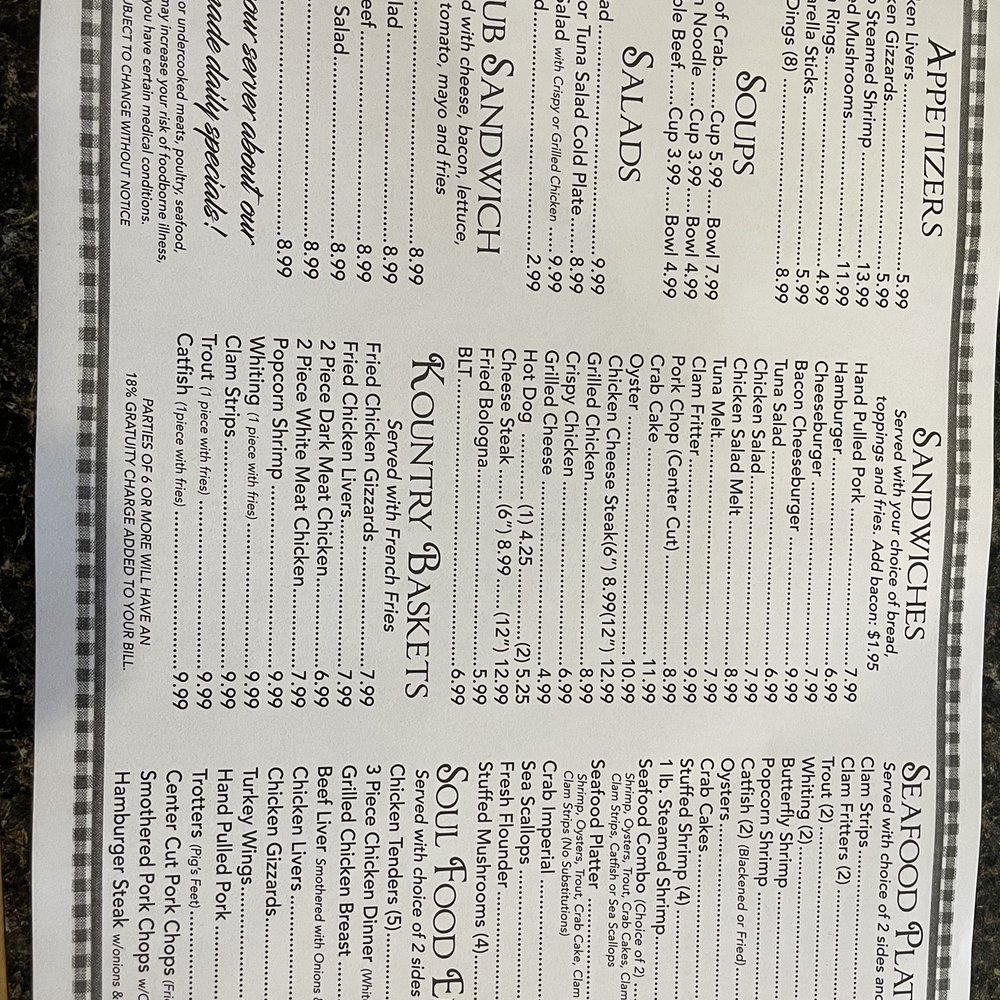 APPETIZERS
ken Livers 5.99
ken Gizzards 5.99
Steamed Shrimp 13.99
ed Mushrooms 11.99
Rings 4.99
arella Sticks 5.99
Dings (8) 8.99
SOUPS
of Crab Cup 5.99 Bowl 7.99
n Noodle Cup 3.99 Bowl 4.99
ble Beef Cup 3.99 Bowl 4.99
SALADS
ad 9.99
or Tuna Salad Cold Plate 8.99
Salad with Crispy or Grilled Chicken 9.99
d 2.99
UB SANDWICH
d with cheese, bacon, lettuce,
tomato, mayo and fries
8.99
lad 8.99
eef 8.99
Salad 8.99
8.99
8.99
our server about our
made daily specials!
or undercooked meats, poultry, seafood,
may increase your risk of foodborne illness,
you have certain medical conditions.
UBJECT TO CHANGE WITHOUT NOTICE
SANDWICHES
Served with your choice of bread,
toppings and fries. Add bacon: $1.95
Hand Pulled Pork 7.99
Hamburger 6.99
Cheeseburger 7.99
Bacon Cheeseburger 9.99
Tuna Salad 6.99
Chicken Salad 7.99
Chicken Salad Melt 8.99
Tuna Melt 7.99
Clam Fritter 9.99
Pork Chop (Center Cut) 8.99
Crab Cake 11.99
Oyster 10.99
Chicken Cheese Steak(6") 8.99(12") 12.99
Grilled Chicken 8.99
Crispy Chicken 6.99
Grilled Cheese 4.99
Hot Dog (1) 4.25 (2) 5.25
Cheese Steak (6") 8.99 (12") 12.99
Fried Bologna 5.99
BLT 6.99
KOUNTRY BASKETS
Served with French Fries
Fried Chicken Gizzards 7.99
Fried Chicken Livers 7.99
2 Piece Dark Meat Chicken 6.99
2 Piece White Meat Chicken 7.99
Popcorn Shrimp 9.99
Whiting (1 piece with fries) 9.99
Clam Strips 9.99
Trout (1 piece with fries) 9.99
Catfish (1piece with fries) 9.99
PARTIES OF 6 OR MORE WILL HAVE AN
18% GRATUITY CHARGE ADDED TO YOUR BILL.
SEAFOOD PLAT
Served with choice of 2 sides and
Clam Strips
Clam Fritters (2)
Trout (2)
Whiting (2)
Butterfly Shrimp
Popcorn Shrimp
Catfish (2) (Blackened or Fried)
Oysters
Crab Cakes
Stuffed Shrimp (4)
1 lb. Steamed Shrimp
Seafood Combo (Choice of 2)
Shrimp, Oysters, Trout, Crab Cakes, Clam
Clam Strips, Catfish or Sea Scallops
Seafood Platter
Shrimp, Oysters, Trout, Crab Cake, Clam
Clam Strips (No Substitutions)
Crab Imperial
Sea Scallops
Fresh Flounder
Stuffed Mushrooms (4)
SOUL FOOD E
Served with choice of 2 sides
Chicken Tenders (5)
3 Piece Chicken Dinner (Whit
Grilled Chicken Breast
Beef Liver Smothered with Onions &
Chicken Livers
Chicken Gizzards
Turkey Wings
Hand Pulled Pork
Trotters (Pig's Feet)
Center Cut Pork Chops (Fri
Smothered Pork Chops w/O
Hamburger Steak w/onions &